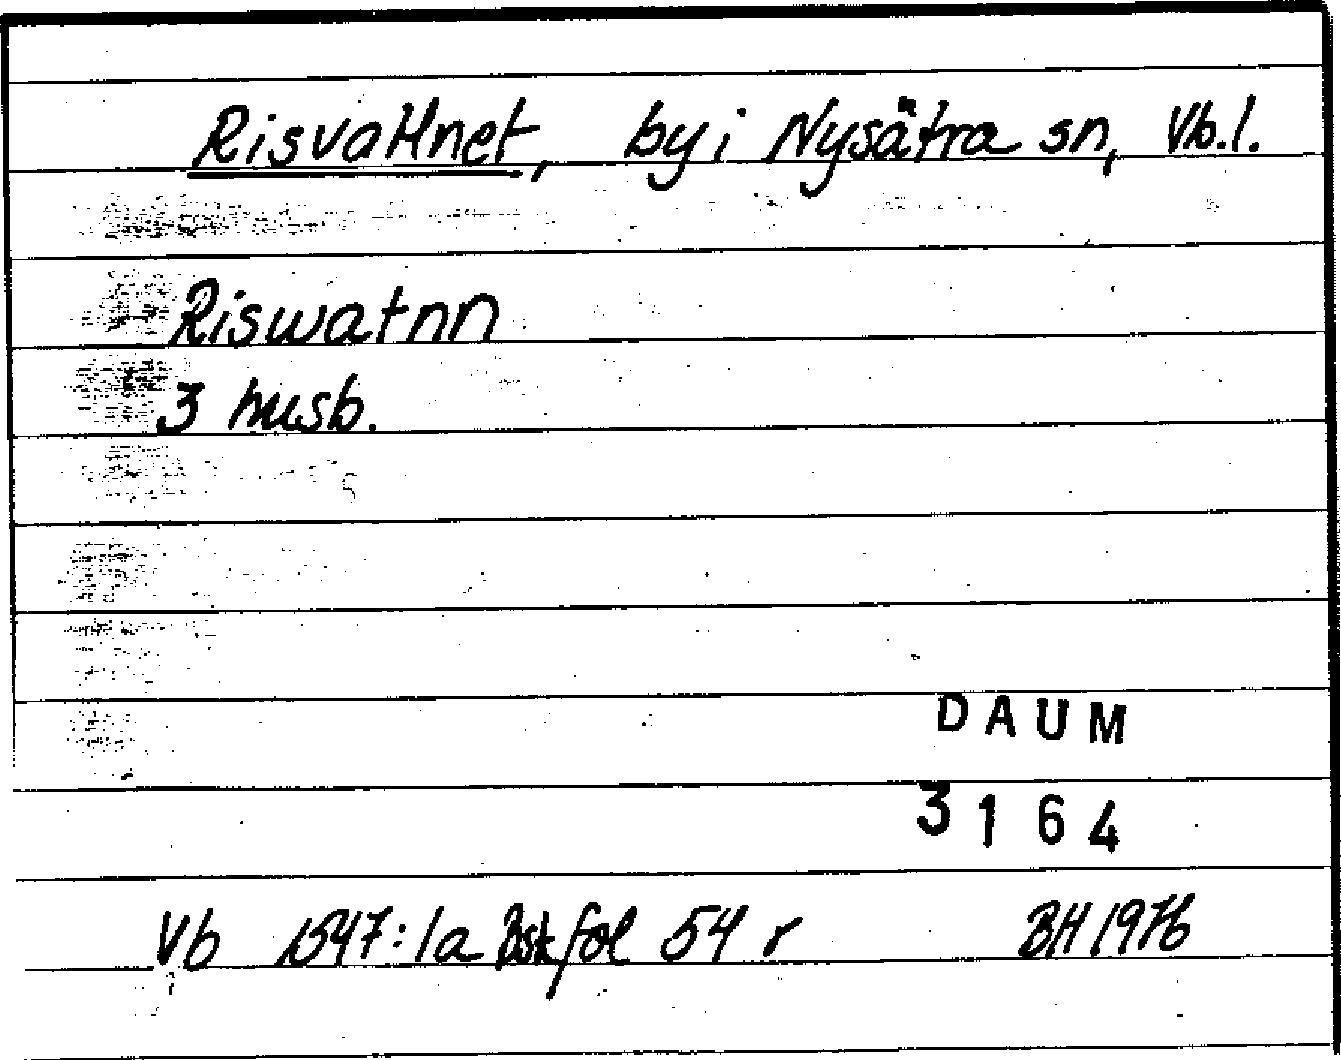 Risvattnet, by i Nysätra sn, Vb.l.
Riswatnn
3 husb.
DAUM
3164
Vb 1547:1a fol 54 r BH 1976